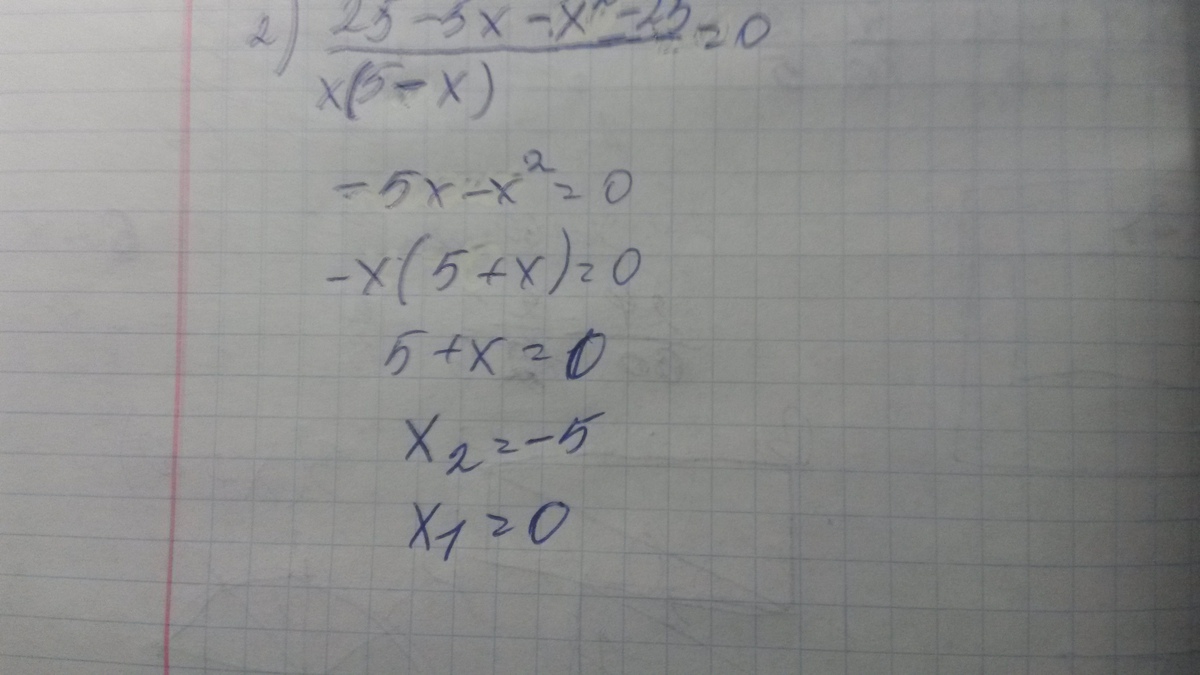 2) 25 - 5x - x² - 25 = 0
x(5 - x)
-5x - x² = 0
-x(5 + x) = 0
5 + x = 0
x₂ = -5
x₁ = 0